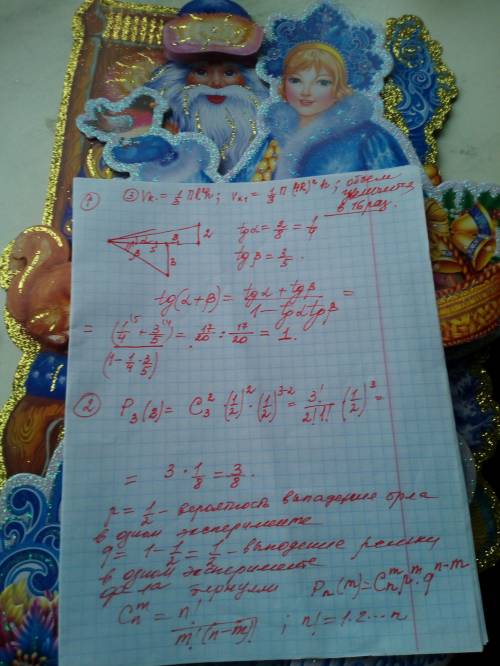 ① ③ Vк. = 1/3 πR²h; Vк1 = 1/3 π(4R)²h; объем
увеличится
в 16 раз.
tgα = 2/8 = 1/4
α 5 3 2
β 3
tgβ = 3/5.
tg(α+β) = (tgα + tgβ)/(1 - tgα tgβ) =
= (1/4 + 3/5)/(1 - 1/4 · 3/5) = 17/20 : 17/20 = 1.
② P₃(2) = C₃² (1/2)² · (1/2)³⁻² = 3!/(2!1!) (1/2)³ =
= 3 · 1/8 = 3/8.
p = 1/2 - вероятность выпадение орла
в одном эксперименте
q = 1 - 1/2 = 1/2 - выпадение решки
в одном эксперименте
Pn(m) = Cnᵐ pᵐ · qⁿ⁻ᵐ
Cnᵐ = n!/(m!(n-m)!) ; n! = 1·2...n